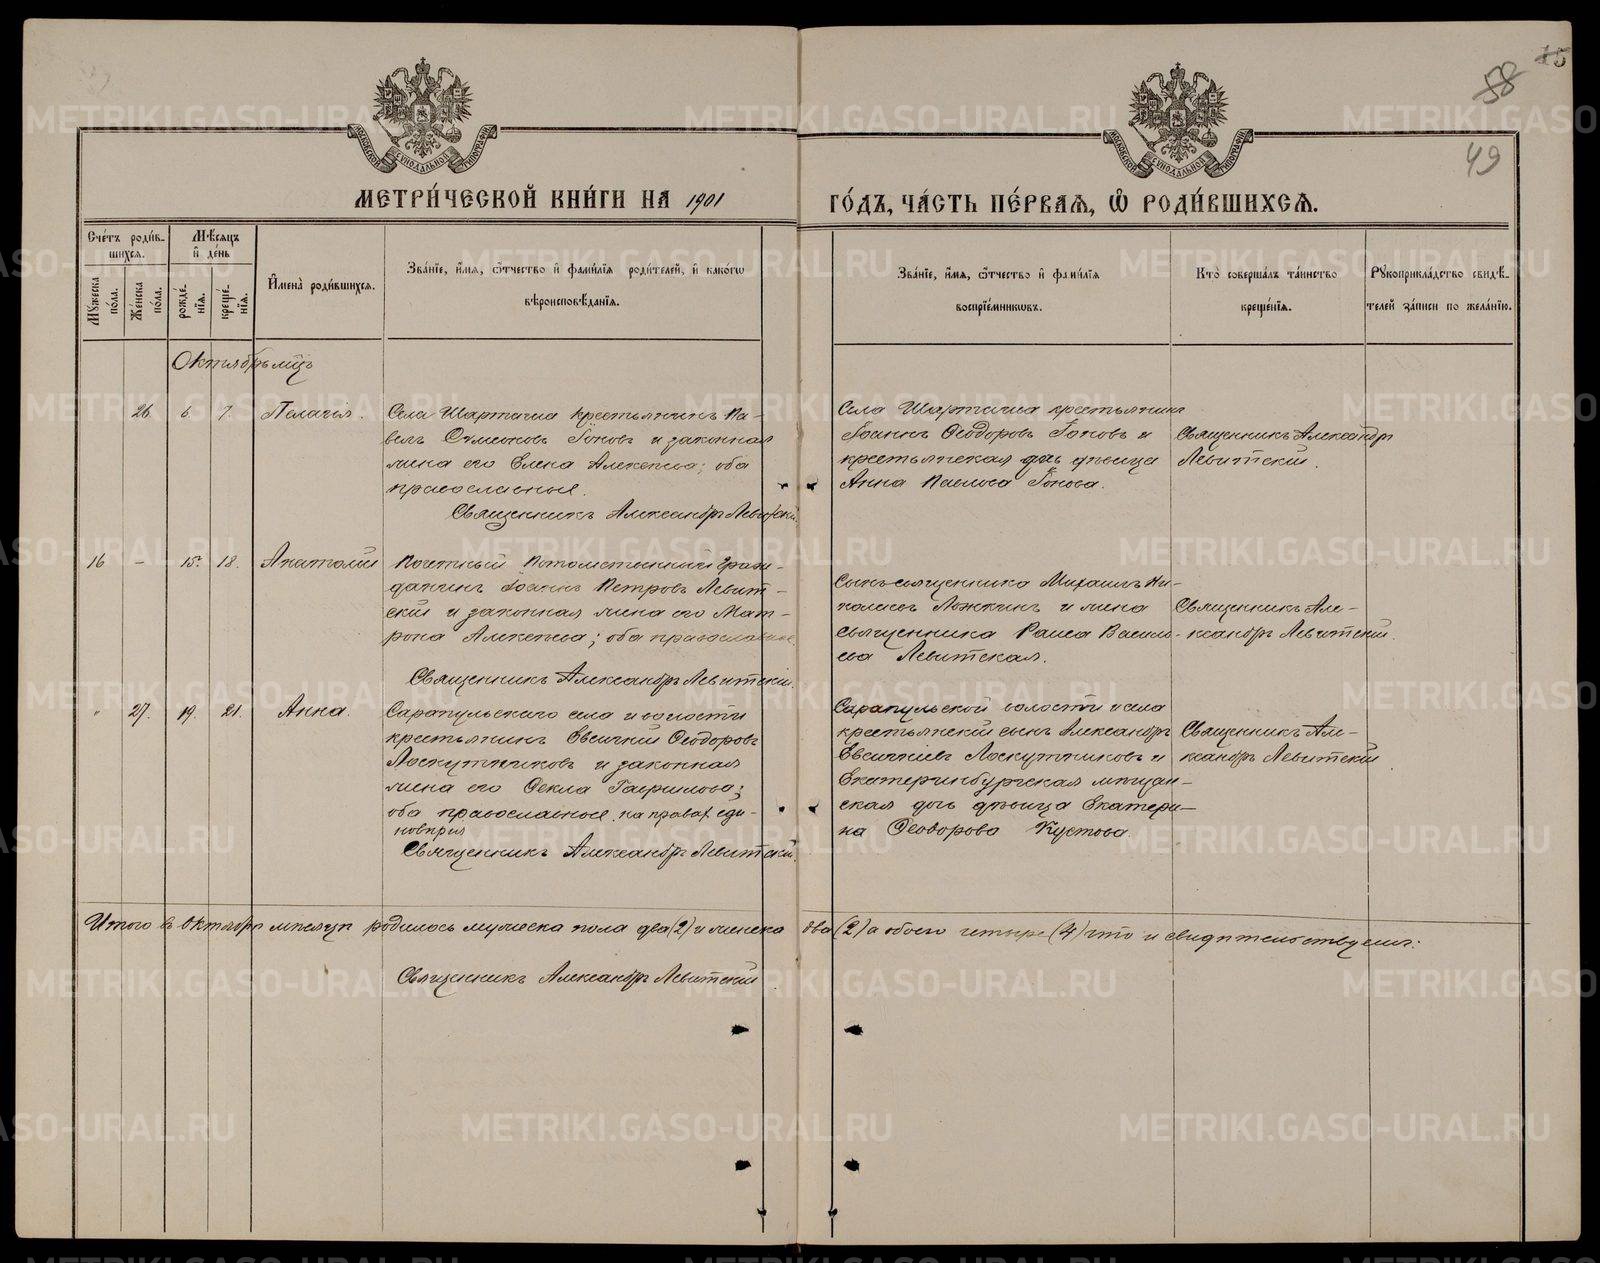 15
58
49
МОСКОВСКОЙ СѴНОДАЛЬНОЙ ТИПОГРАФІИ
МОСКОВСКОЙ СѴНОДАЛЬНОЙ ТИПОГРАФІИ
МЕТРИ́ЧЕСКОЙ КНИ́ГИ НА 1901 ГО́ДЪ, ЧА́СТЬ ПЕ́РВАѦ, Ѡ҆ РОДИ́ВШИХСѦ.
Сче́тъ роди́в-
шихсѧ.
Мꙋ́жеска
по́ла.
Же́нска
по́ла.
Мѣ́сѧцъ
и҆ де́нь
рожде́-
нїѧ.
креще́-
нїѧ.
И҆мена̀ роди́вшихсѧ.
Зва́нїе, и҆́мѧ, ѻ҆́тчество и҆ фами́лїѧ роди́телей, и҆ како́гѡ
вѣроисповѣ́данїѧ.
Зва́нїе, и҆́мѧ, ѻ҆́тчество и҆ фами́лїѧ
воспрїе́мникѡвъ.
Кто̀ соверша́лъ та́инство
креще́нїѧ.
Рꙋкоприкла́дство свидѣ́-
телей за́писи по жела́нїю.
Октябрь мц͠ъ
26. 6. 7. Пелагія.
Села Шарташа крестьянинъ Па-
велъ Симеоновъ Гоковъ и законная
жена его Елена Алексѣева; оба
православные.
Священникъ Александръ Левитскій.
Села Шарташа крестьянинъ
Іоаннъ Ѳеодоровъ Гоковъ и
крестьянская дочь дѣвица
Анна Павлова Гокова.
Священникъ Александръ
Левитскій.
16 – 15. 18. Анатолій
Почетный Потомственный Граж-
данинъ Іоаннъ Петровъ Левит-
скій и законная жена его Мат-
рона Алексѣева; оба православные
Священникъ Александръ Левитскій.
Сынъ священника Михаилъ Ни-
колаевъ Ложкинъ и жена
священника Раиса Василь-
ева Левитская.
Священникъ Але-
ксандръ Левитскій.
" 27. 19. 21. Анна.
Сарапульскаго села и волости
крестьянинъ Евсигній Ѳеодоровъ
Лоскутниковъ и законная
жена его Ѳекла Гаврилова;
оба православные на правах еди-
новѣрія
Священникъ Александръ Левитскій.
Сарапульской волости и села
крестьянскій сынъ Александръ
Евсигніевъ Лоскутниковъ и
Екатеринбургская мѣщан-
ская дочь дѣвица Екатери-
на Ѳеодорова Кустова.
Священникъ Але-
ксандръ Левитскій
Итого въ октябрѣ мѣсяцѣ родилось мужеска пола два (2) и женска два (2) а обоего четыре (4) что и свидѣтельствуемъ:
Священникъ Александръ Левитскій
METRIKI.GASO-URAL.RU